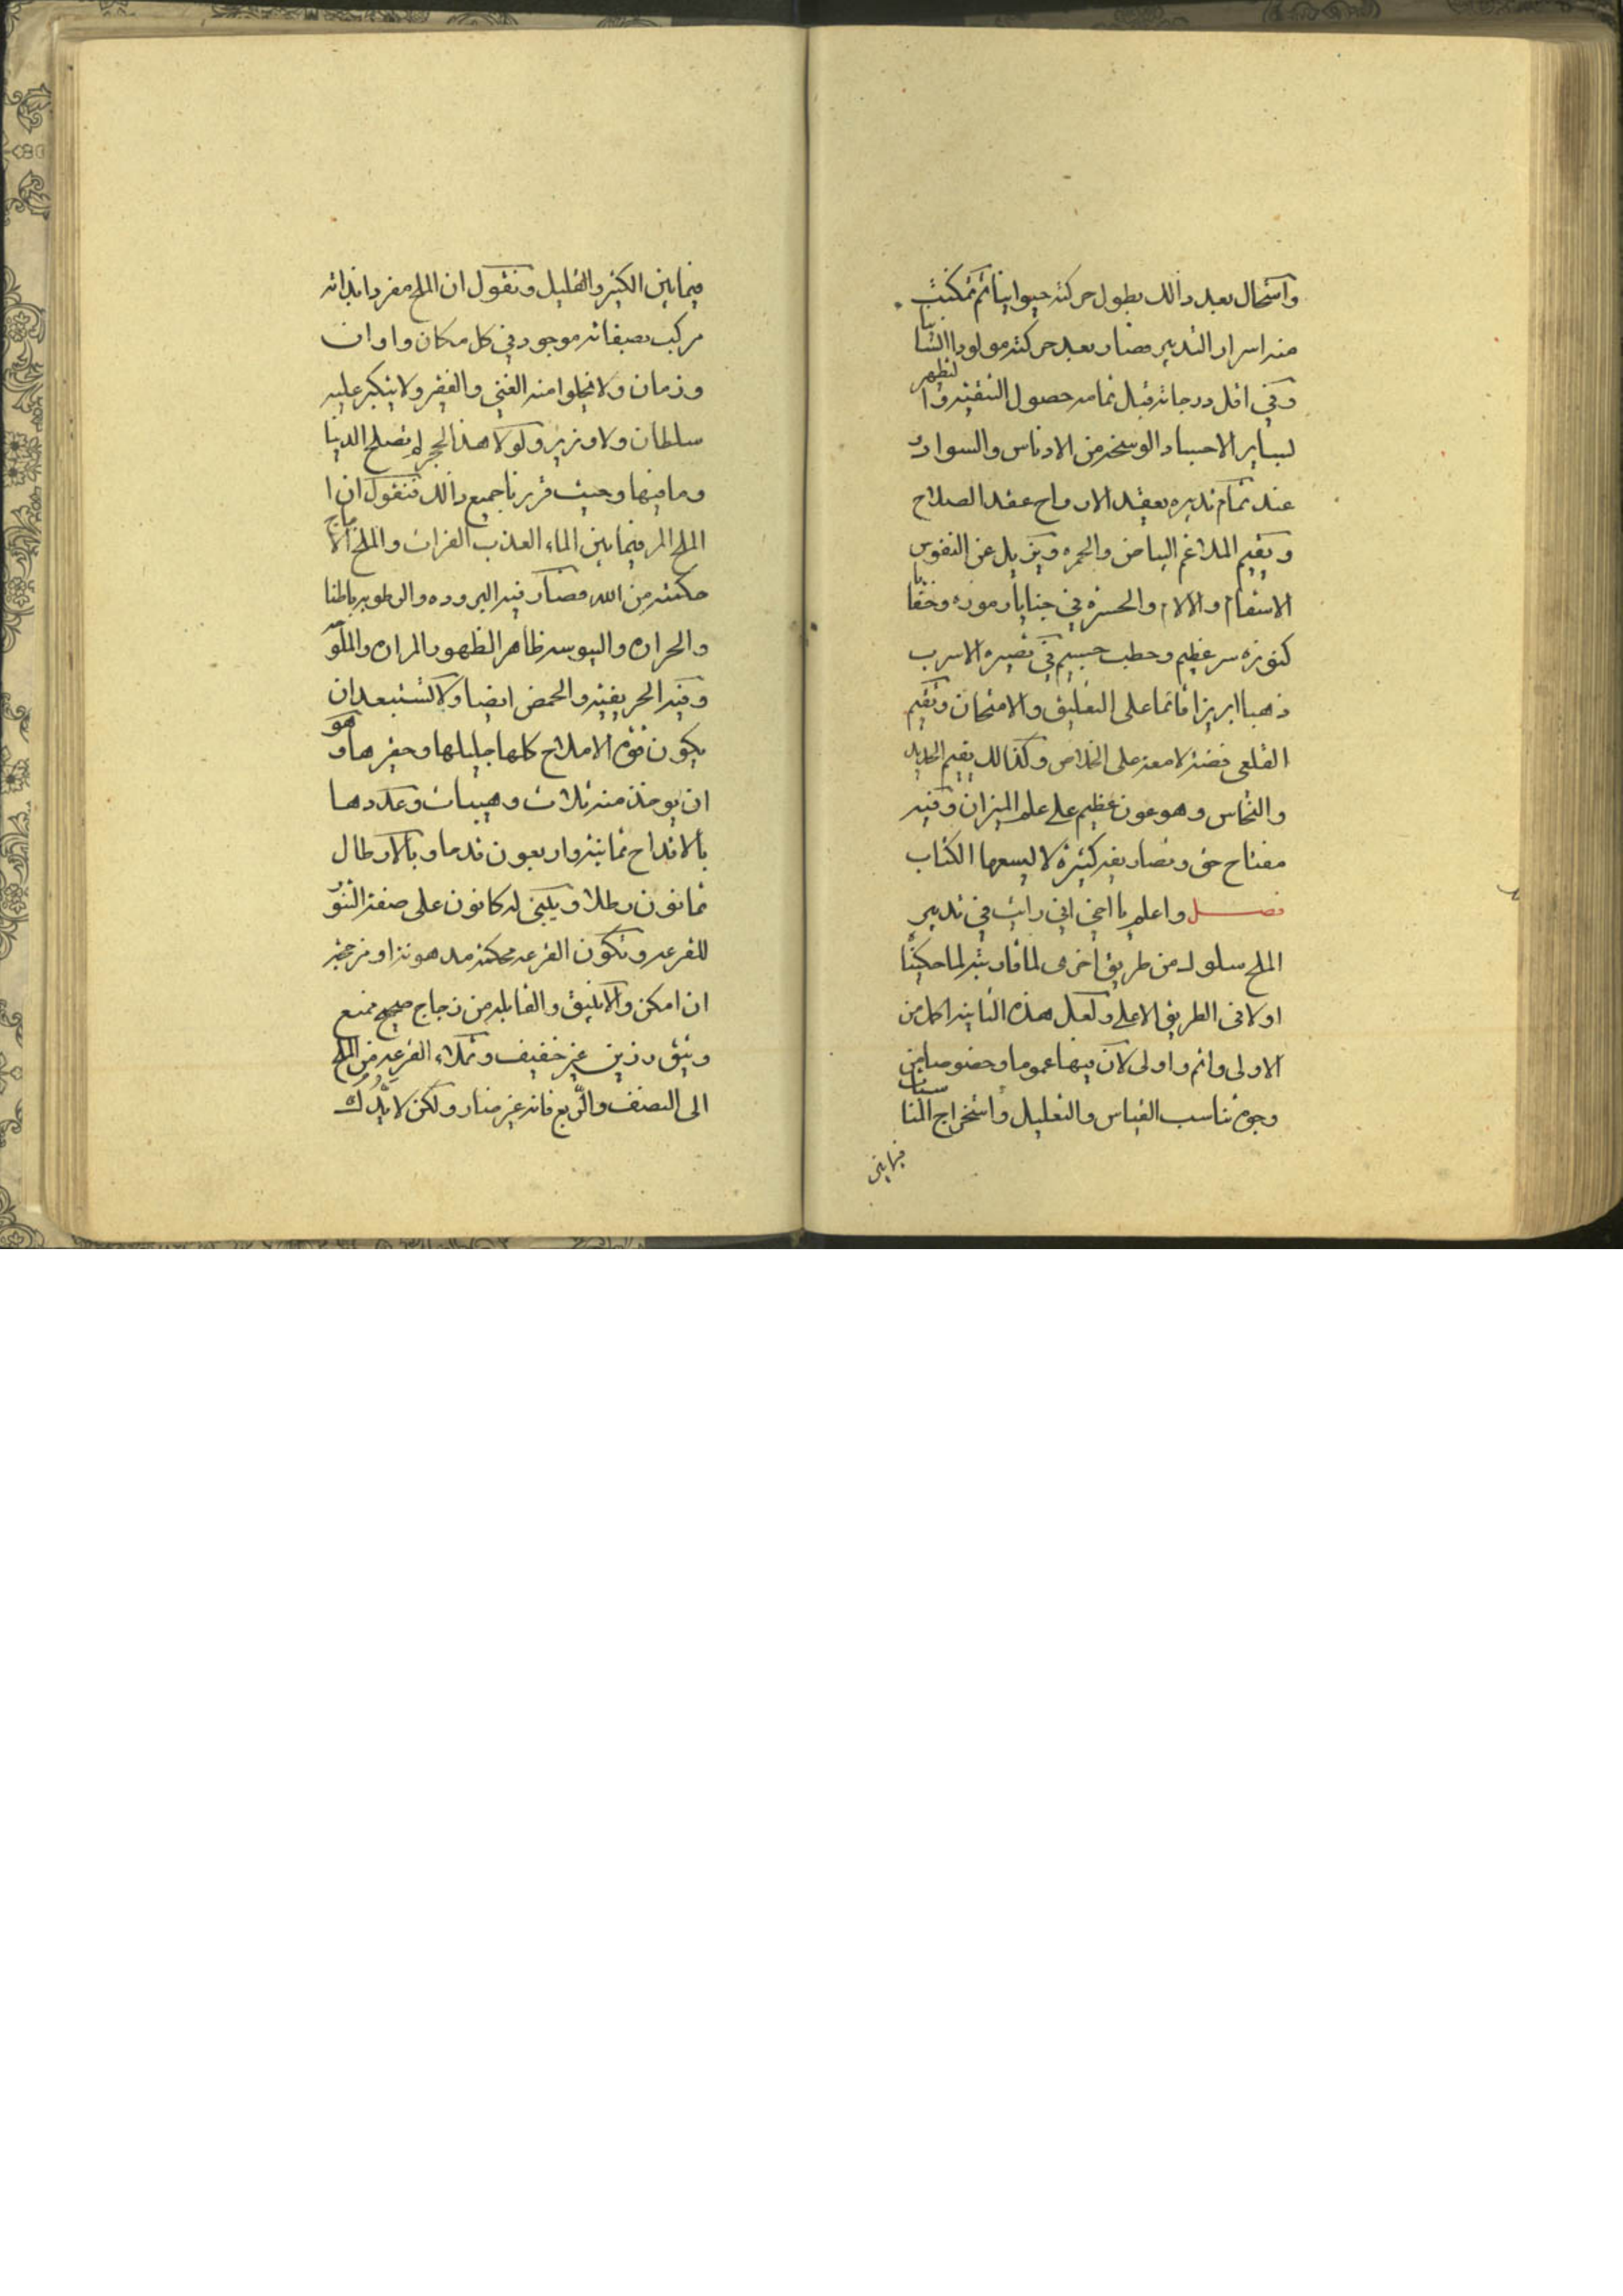 واستحال بعد ذالك بطول حركته حيوانيا ثم تمكنت
منه اسرار التدبير فصار بعد حركته مولودا انسانيا
وفي اقل درجاته قبل تمامه حصول التنقيه والتطهير
لساير الاجساد الوسخه من الادناس والسواد و
عند تمام تدبيره يعقد الارواح عقد الصلاح
ويقيم الملاغم البياض والحمره ويزيل عن النفوس
الاسقام والالام والحسره في خبايا رموزه وخفايا
كنوزه سر عظيم وخطب جسيم في تصيره الاسرب
ذهبا ابريزا قائما على التعليق والامتحان ويقيم
القلعي فضه لامعه على الخلاص وكذالك يقيم الحديد
والنحاس وهو عون عظيم على علم الميزان وفيه
مفتاح حق وتصاريفه كثيرة لا يسعها الكتاب
فصل واعلم يا اخي اني رايت في تدبير
الملح سلوك من طريق اخرى لمافا لما حكينا
اولا في الطريق الاعلى ولعل هذه الثانيه اكمل من
الاولى واتم واولى لان فيها عموما وخصوصا من
وجوه تناسب القياس والتعليل واستخراج المناسبات
فيما بين
فيما بين الكثير والقليل ونقول ان الملح مفردا بذاته
مركب بصفاته موجود في كل مكان واوان
وزمان ولا يخلوا منه الغني والفقير ولا يتكبر عليه
سلطان ولا وزير ولولا هذا الحجر لم تصلح الدنيا
وما فيها وحيث قررنا جميع ذالك فنقول ان ا
الملح المر فيما بين الماء العذب الفرات والملح الاجاج
حكمته من الله فصار فيه البروده والرطوبه باطنا
والحراره واليبوسه ظاهر الظهور المراره والملوحه
وفيه الحريفيه والحمض ايضا ولا تستبعد ان
يكون قوة الاملاح كلها جليلها وحقيرها وهو
ان يوخذ منه ثلاث وهيبات وعددها
بالاقداح ثمانيه واربعون قدحا وبالارطال
ثمانون رطلا ويبني له كانون على صفة التنور
للقرعه وتكون القرعه محكمه مدهونه او مزججه
ان امكن والانبيق والقابله من زجاج صحيح منيع
وثيق رزين غير خفيف وتملاء القرعه من الملح
الى النصف والربع فانه غير ضار ولكن لا يدرك